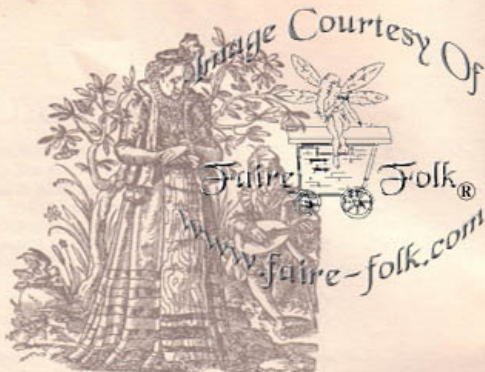 Image Courtesy Of
Faire Folk®
www.faire-folk.com